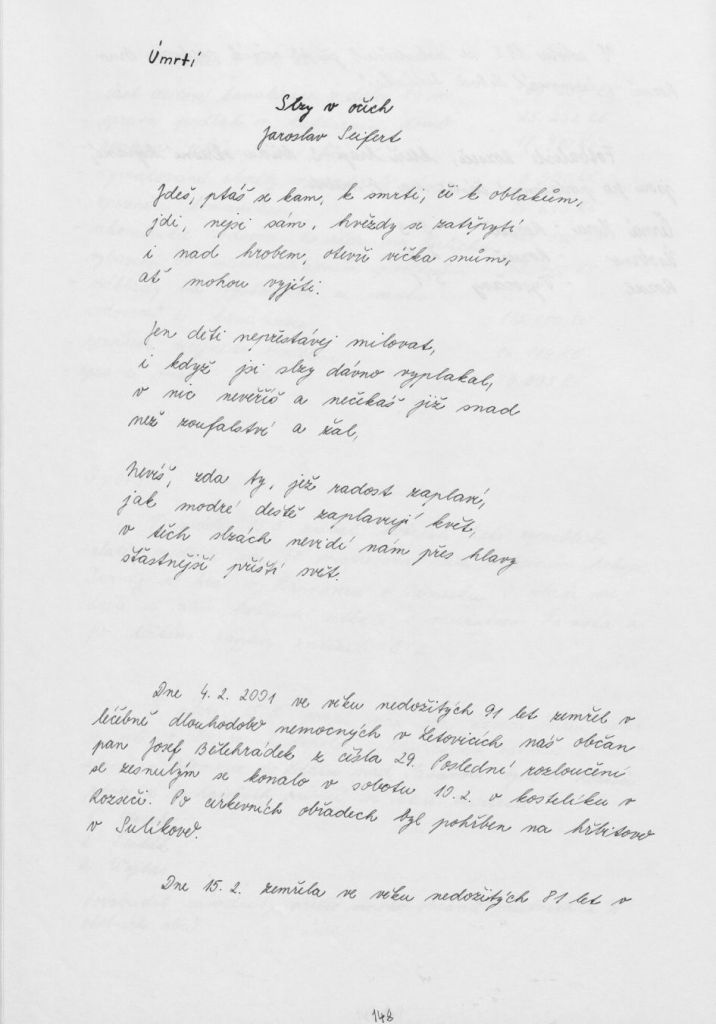 Úmrtí
Slzy v očích
Jaroslav Seifert
Jdeš, ptáš se kam, k smrti, či k oblakům,
jdi, nejsi sám, hvězdy se zatřpytí
i nad hrobem, otevři víčka snům,
ať mohou vyjíti.
Jen děti nepřestávej milovat,
i když jsi slzy dávno vyplakal,
v nic nevěříš a nečekáš již snad
než zoufalství a žal,
Nevíš, zda ty, jež radost zaplaví,
jak modré deště zaplavují květ,
v těch slzách nevidí nám přes hlavy
šťastnější příští svět.
Dne 4. 2. 2001 ve věku nedožitých 91 let zemřel v
léčebně dlouhodobě nemocných v Letovicích náš občan
pan Josef Bělehrádek z čísla 29. Poslední rozloučení
se zesnulým se konalo v sobotu 10. 2. v kostelíku v
Rozseči. Po církevních obřadech byl pohřben na hřbitově
v Sulíkově.
Dne 15. 2. zemřela ve věku nedožitých 81 let v
148